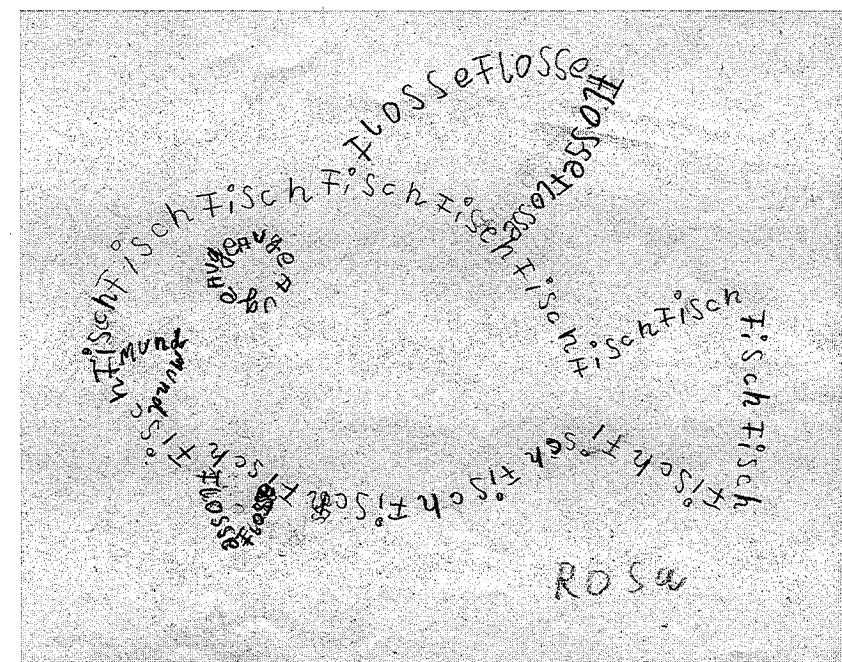 FlosseFlosseFlosseFlosse
FischFischFischFischFischFischFisch
FischFischFischFisch
FischFischFischFischFischFischFisch
AugeAugeAuge
Mund
Mund
Flosse
Flosse
ROSa